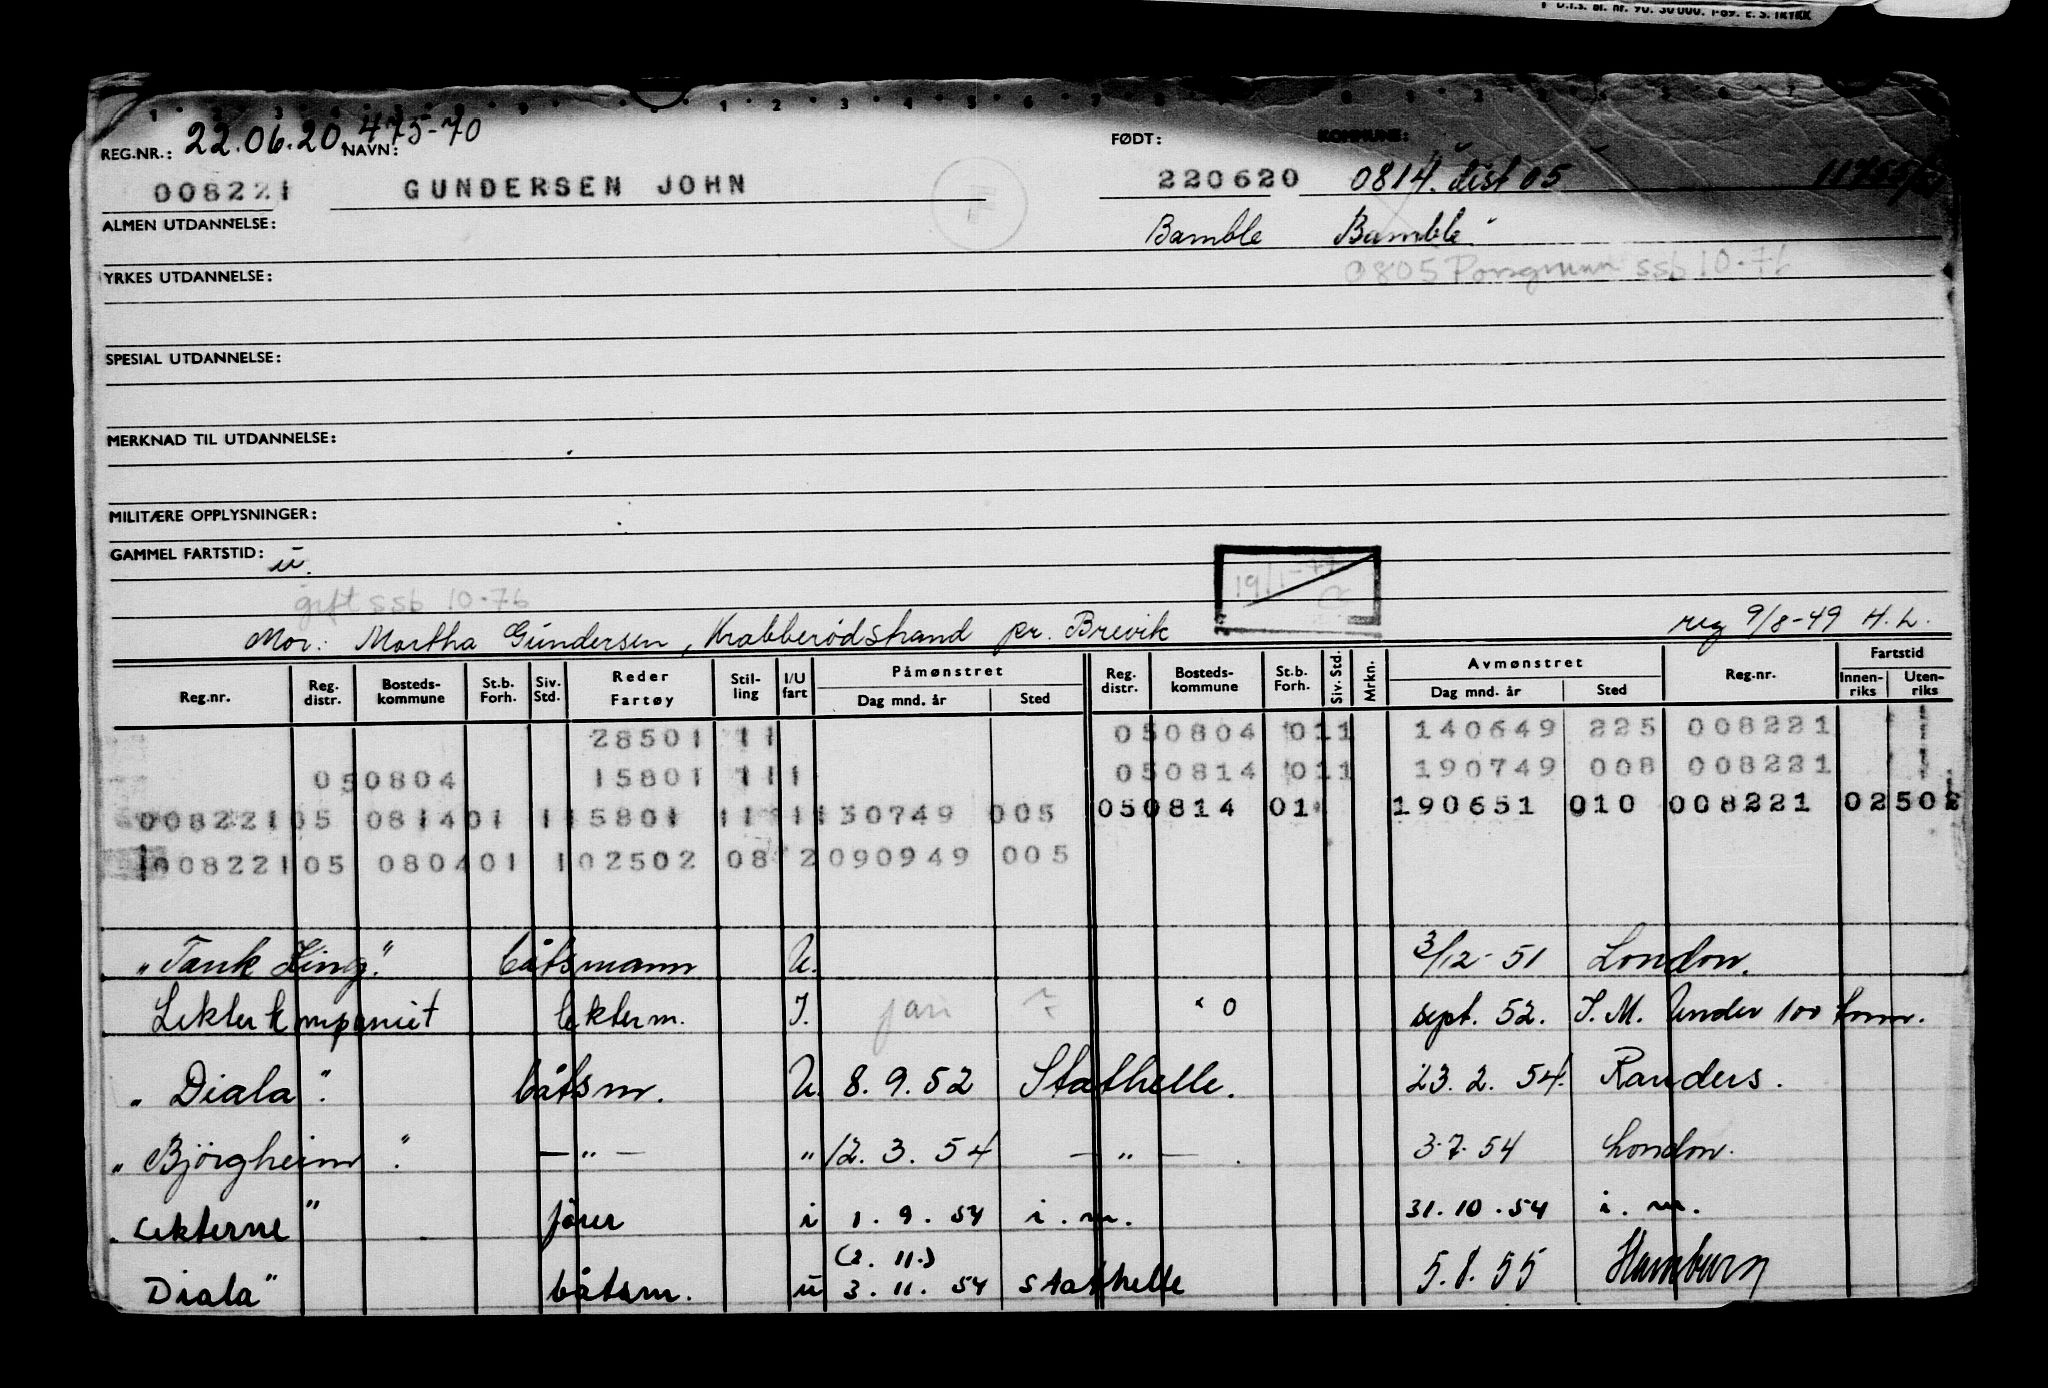 D.I.S. bl. nr. 90. 30000. 1-69. E. S. TRYKK
REG.NR.: 22.06.20. 475-70 NAVN: FØDT: KOMMUNE:
008221 GUNDERSEN JOHN 220620 0814. dist 05
ALMEN UTDANNELSE: Bamble Bamble
YRKES UTDANNELSE: 0805 Porsgrunn ssb 10-76
SPESIAL UTDANNELSE:
MERKNAD TIL UTDANNELSE:
MILITÆRE OPPLYSNINGER:
GAMMEL FARTSTID: u.
gift ssb 10-76 19/1-77
Mor: Martha Gundersen, Krabberødstrand pr. Brevik reg 9/8-49 H.L.
Reg.nr. Reg. distr. Bosteds-kommune St.b. Forh. Siv. Std. Reder Fartøy Stil-ling I/U fart Påmønstret Dag mnd. år Sted Reg. distr. Bosteds-kommune St.b. Forh. Siv. Std. Mrkn. Avmønstret Dag mnd. år Sted Reg.nr. Fartstid Innen-riks Uten-riks
28501 11 050804 011 140649 225 008221
050804 15801 111 050814 011 190749 008 008221
00822105 081401 115801 11 1130749 005 050814 01 190651 010 008221 02502
00822105 080401 102502 08 2090949 005
"Tank King" båtsmann U. 3/12-51 London.
Lekterkompaniet lekterm. I. jan 0 sept. 52. I.M. Under 100 tonn.
"Diala". båtsm. U. 8.9.52 Stathelle. 23.2.54. Randers.
"Bjørgheim". —"— " 12.3.54 —"—. 3.7.54 London.
"Lekterne" fører i 1.9.54 i.m. 31.10.54 i.m.
(2.11.)
Diala" båtsm. u 3.11.54 Stathelle 5.8.55 Hamburg